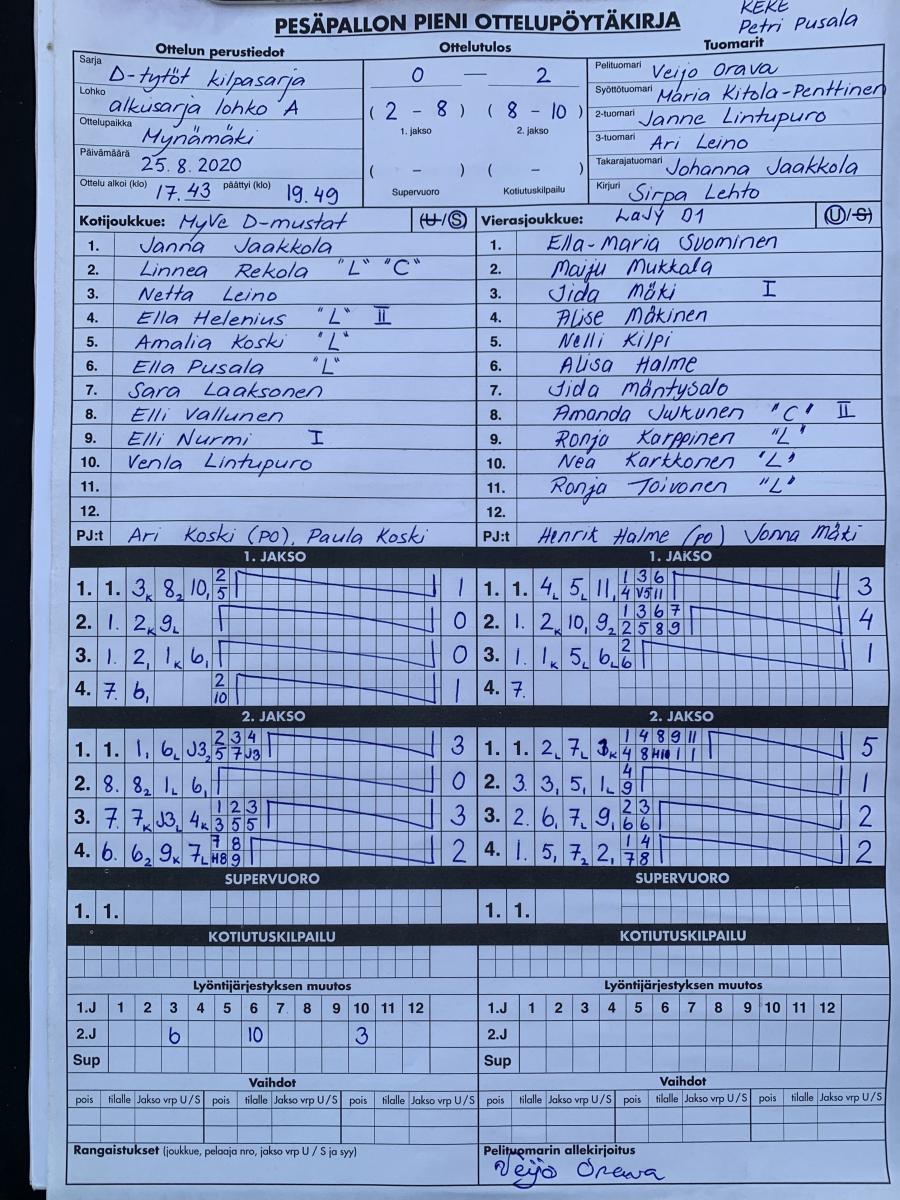 KEKE
Petri Pusala
PESÄPALLON PIENI OTTELUPÖYTÄKIRJA
Ottelun perustiedot
Sarja D-tytöt kilpasarja
Lohko alkusarja lohko A
Ottelupaikka Mynämäki
Päivämäärä 25.8.2020
Ottelu alkoi (klo) 17.43 päättyi (klo) 19.49
Ottelutulos
0 — 2
( 2 - 8 ) ( 8 - 10 )
1. jakso 2. jakso
( - ) ( - )
Supervuoro Kotiutuskilpailu
Tuomarit
Pelituomari Veijo Orava
Syöttötuomari Maria Kitola-Penttinen
2-tuomari Janne Lintupuro
3-tuomari Ari Leino
Takarajatuomari Johanna Jaakkola
Kirjuri Sirpa Lehto
Kotijoukkue: MyVe D-mustat (U/S)
1. Janna Jaakkola
2. Linnea Rekola "L" "C"
3. Netta Leino
4. Ella Helenius "L" II
5. Amalia Koski "L"
6. Ella Pusala "L"
7. Sara Laaksonen
8. Elli Vallunen
9. Elli Nurmi I
10. Venla Lintupuro
11.
12.
PJ:t Ari Koski (PO), Paula Koski
Vierasjoukkue: LaJy D1 (U/S)
1. Ella-Maria Suominen
2. Maiju Mukkala
3. Iida Mäki I
4. Alise Mäkinen
5. Nelli Kilpi
6. Alisa Halme
7. Iida Mäntysalo
8. Amanda Jukunen "C" II
9. Ronja Karppinen "L"
10. Nea Karkkonen "L"
11. Ronja Toivonen "L"
12.
PJ:t Henrik Halme (po) Jonna Mäki
1. JAKSO
1. 1. 3K 82 10, 2 5 1
2. 1. 2K 9L 0
3. 1. 2, 1K 6, 0
4. 7. 6, 2 10 1
1. JAKSO
1. 1. 4L 5L 11, 1 3 6 4 V5 11 3
2. 1. 2K 10, 92 1 3 6 7 2 5 8 9 4
3. 1. 1K 5L 6L 2 6 1
4. 7.
2. JAKSO
1. 1. 1, 6L J3, 2 3 4 5 7 J3 3
2. 8. 82 1L 6, 0
3. 7. 7K J3L 4K 1 2 3 3 5 5 3
4. 6. 62 9K 7L 7 8 H8 9 2
2. JAKSO
1. 1. 2L 7L 3K 1 4 8 9 11 4 8 H10 1 1 5
2. 3. 3, 5, 1L 4 9 1
3. 2. 6, 7L 9, 2 3 6 6 2
4. 1. 5, 72 2, 1 4 7 8 2
SUPERVUORO
1. 1.
SUPERVUORO
1. 1.
KOTIUTUSKILPAILU
KOTIUTUSKILPAILU
Lyöntijärjestyksen muutos
1.J 1 2 3 4 5 6 7 8 9 10 11 12
2.J 6 10 3
Sup
Lyöntijärjestyksen muutos
1.J 1 2 3 4 5 6 7 8 9 10 11 12
2.J
Sup
Vaihdot
pois tilalle Jakso vrp U/S pois tilalle Jakso vrp U/S pois tilalle Jakso vrp U/S
Vaihdot
pois tilalle Jakso vrp U/S pois tilalle Jakso vrp U/S pois tilalle Jakso vrp U/S
Rangaistukset (joukkue, pelaaja nro, jakso vrp U / S ja syy)
Pelituomarin allekirjoitus
Veijo Orava